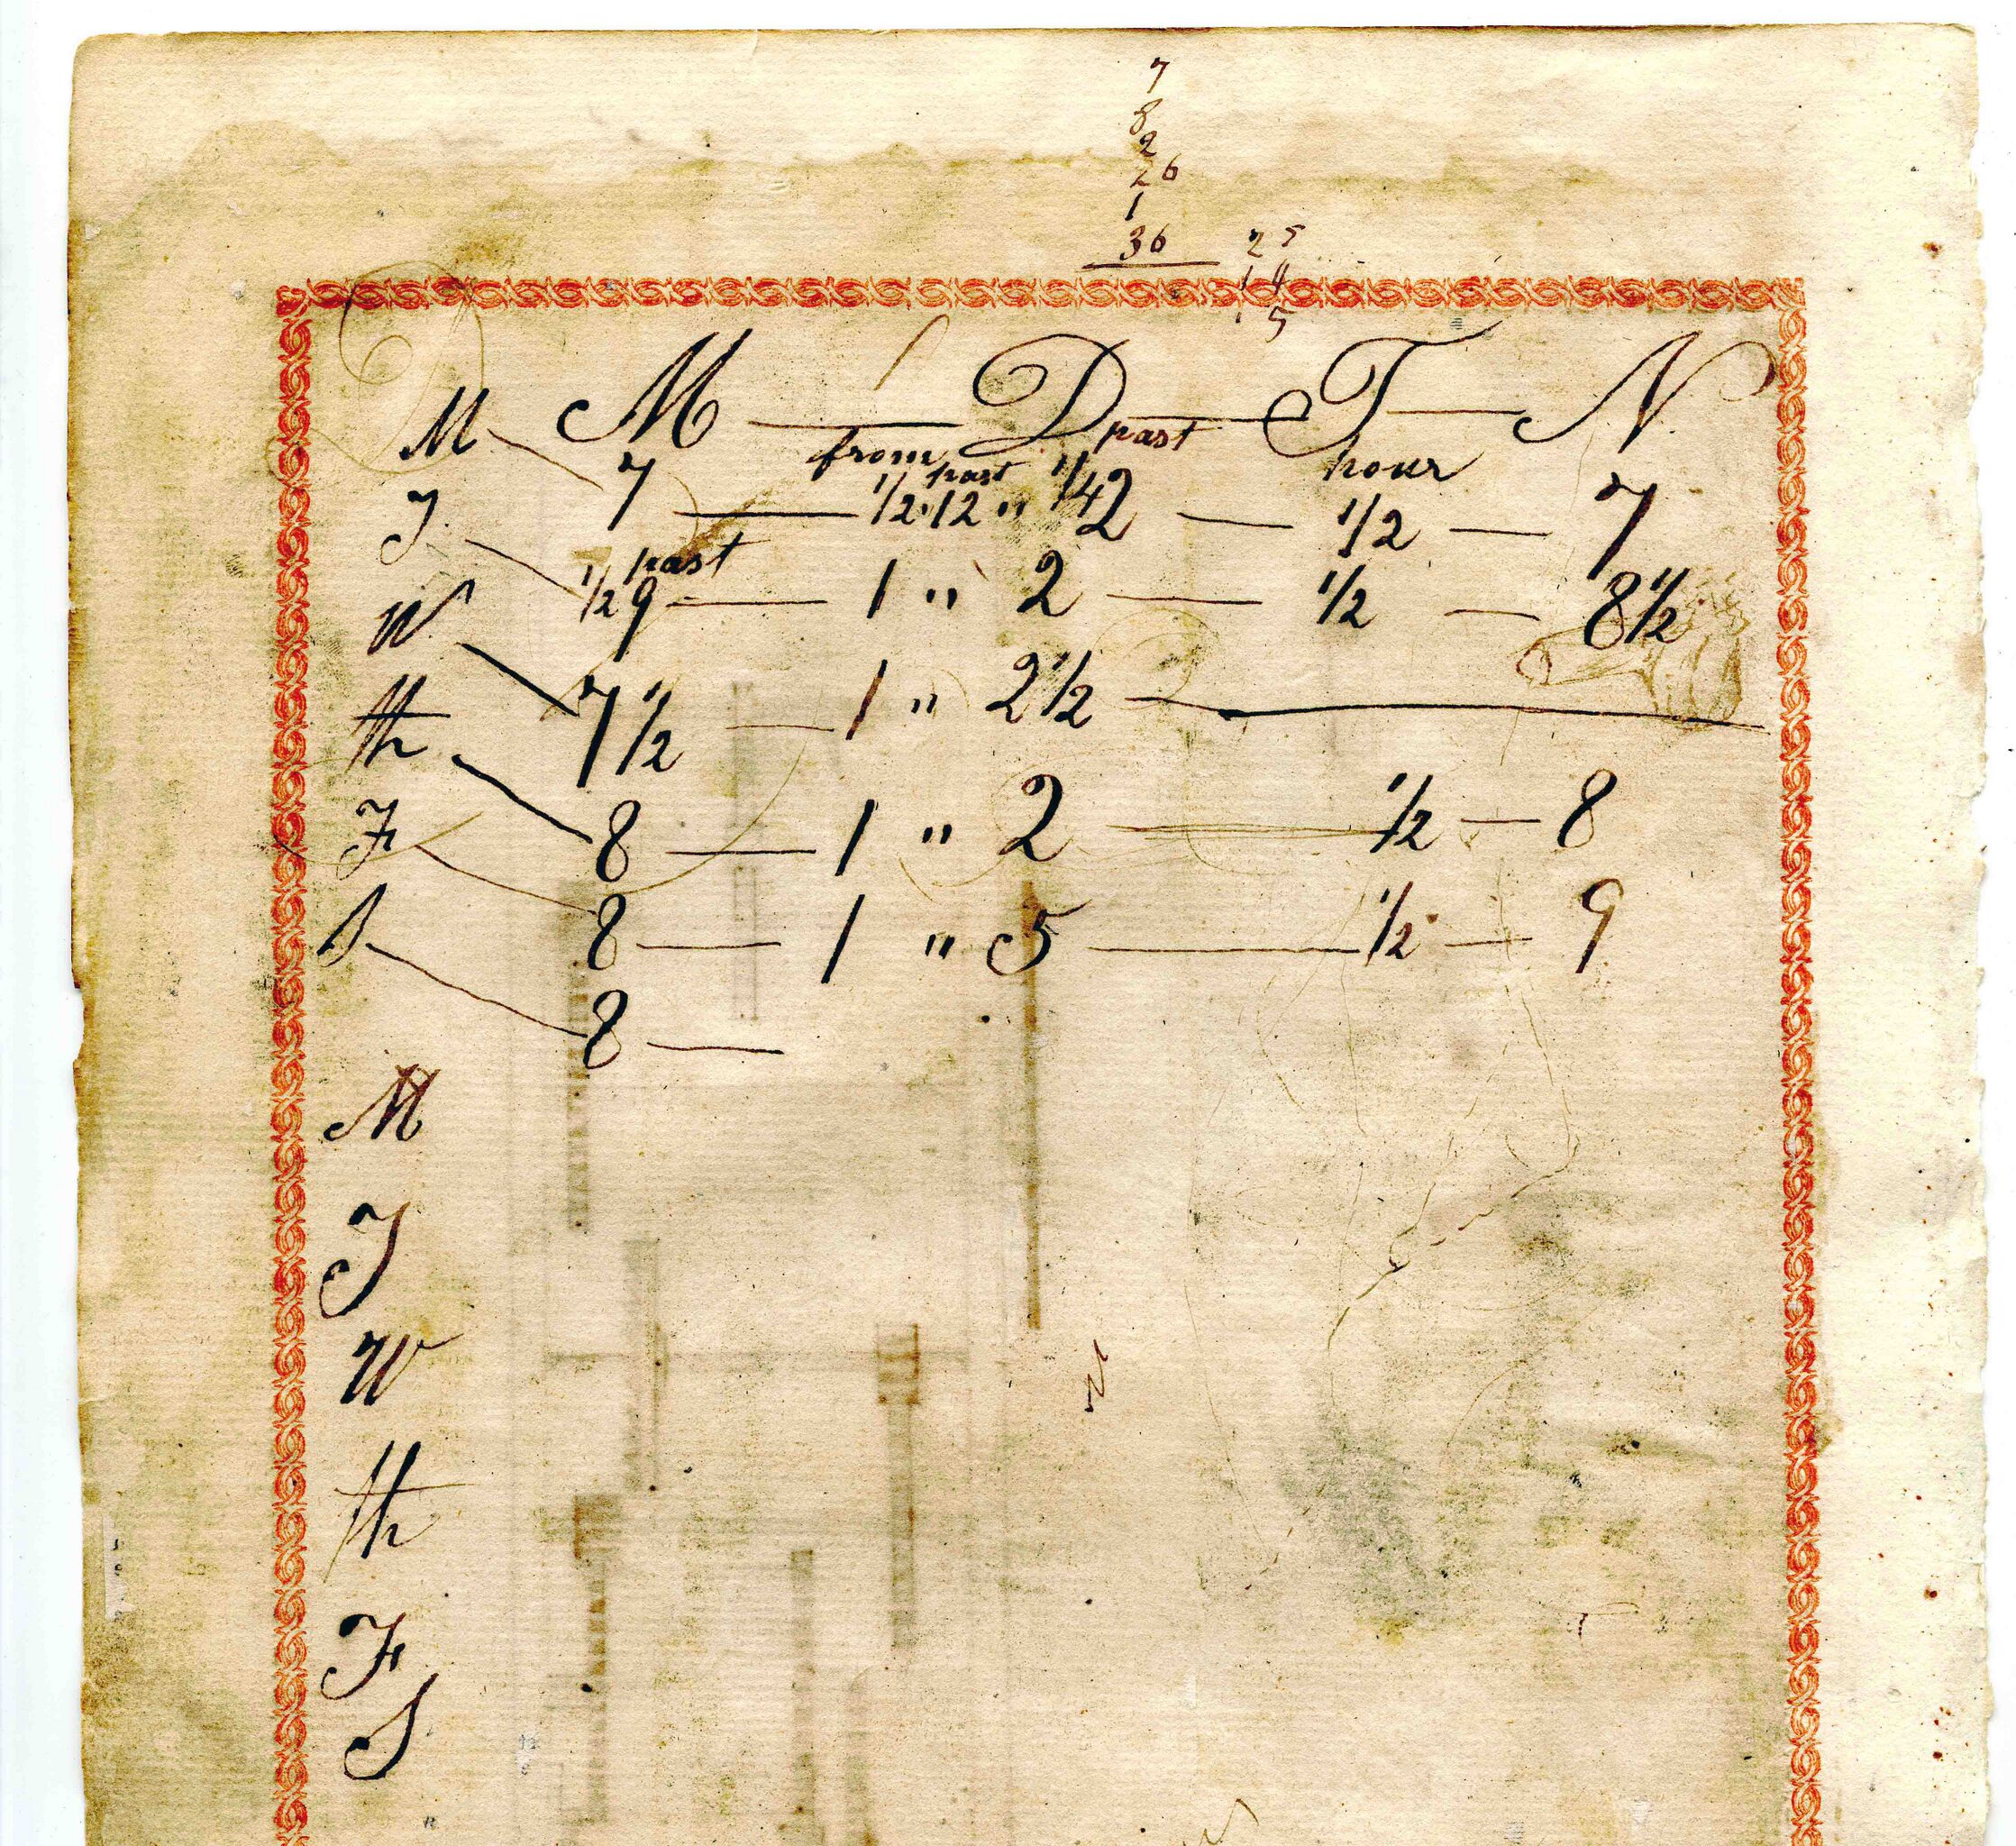 7
8
2
26
1
36
25
14
5
M — D — T — N
M
from past hour
7 — 1/2 past 12 " 1/4 2 — 1/2 — 7
T
1/2 past 9 — 1 " 2 — 1/2 — 8 1/2
W
7 1/2 — 1 " 2 1/2 —
th
8 — 1 " 2 — 1/2 — 8
F
8 — 1 " 5 — 1/2 — 9
S
8 —
M
T
W
N
th
F
S